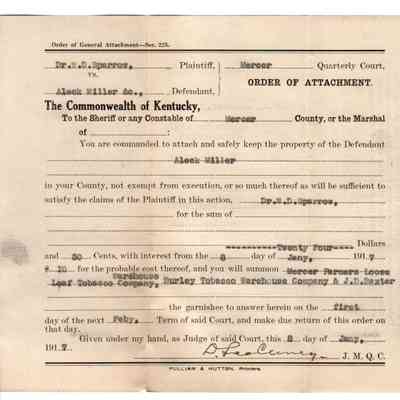 Order of General Attachment—Sec. 225.
Dr.W.D.Sparrow, Plaintiff, Mercer Quarterly Court,
vs.
ORDER OF ATTACHMENT.
Aleck Miller &c., Defendant,
The Commonwealth of Kentucky,
To the Sheriff or any Constable of Mercer County, or the Marshal
of :
You are commanded to attach and safely keep the property of the Defendant
Aleck Miller
in your County, not exempt from execution, or so much thereof as will be sufficient to
satisfy the claims of the Plaintiff in this action, Dr.W.D.Sparrow,
for the sum of
Twenty Four Dollars
and 50 Cents, with interest from the 8 day of Jany, 1917
$ 10 for the probable cost thereof, and you will summon Mercer Farmers Loose
Warehouse
Leaf Tobacco Company, Burley Tobacco Warehouse Company & J.D.Baxter
the garnishee to answer herein on the first
day of the next Feby. Term of said Court, and make due return of this order on
that day.
Given under my hand, as Judge of said Court, this 8 day of Jany,
1917. J. M. Q. C.
PULLIAM & HUTTON, Printers.